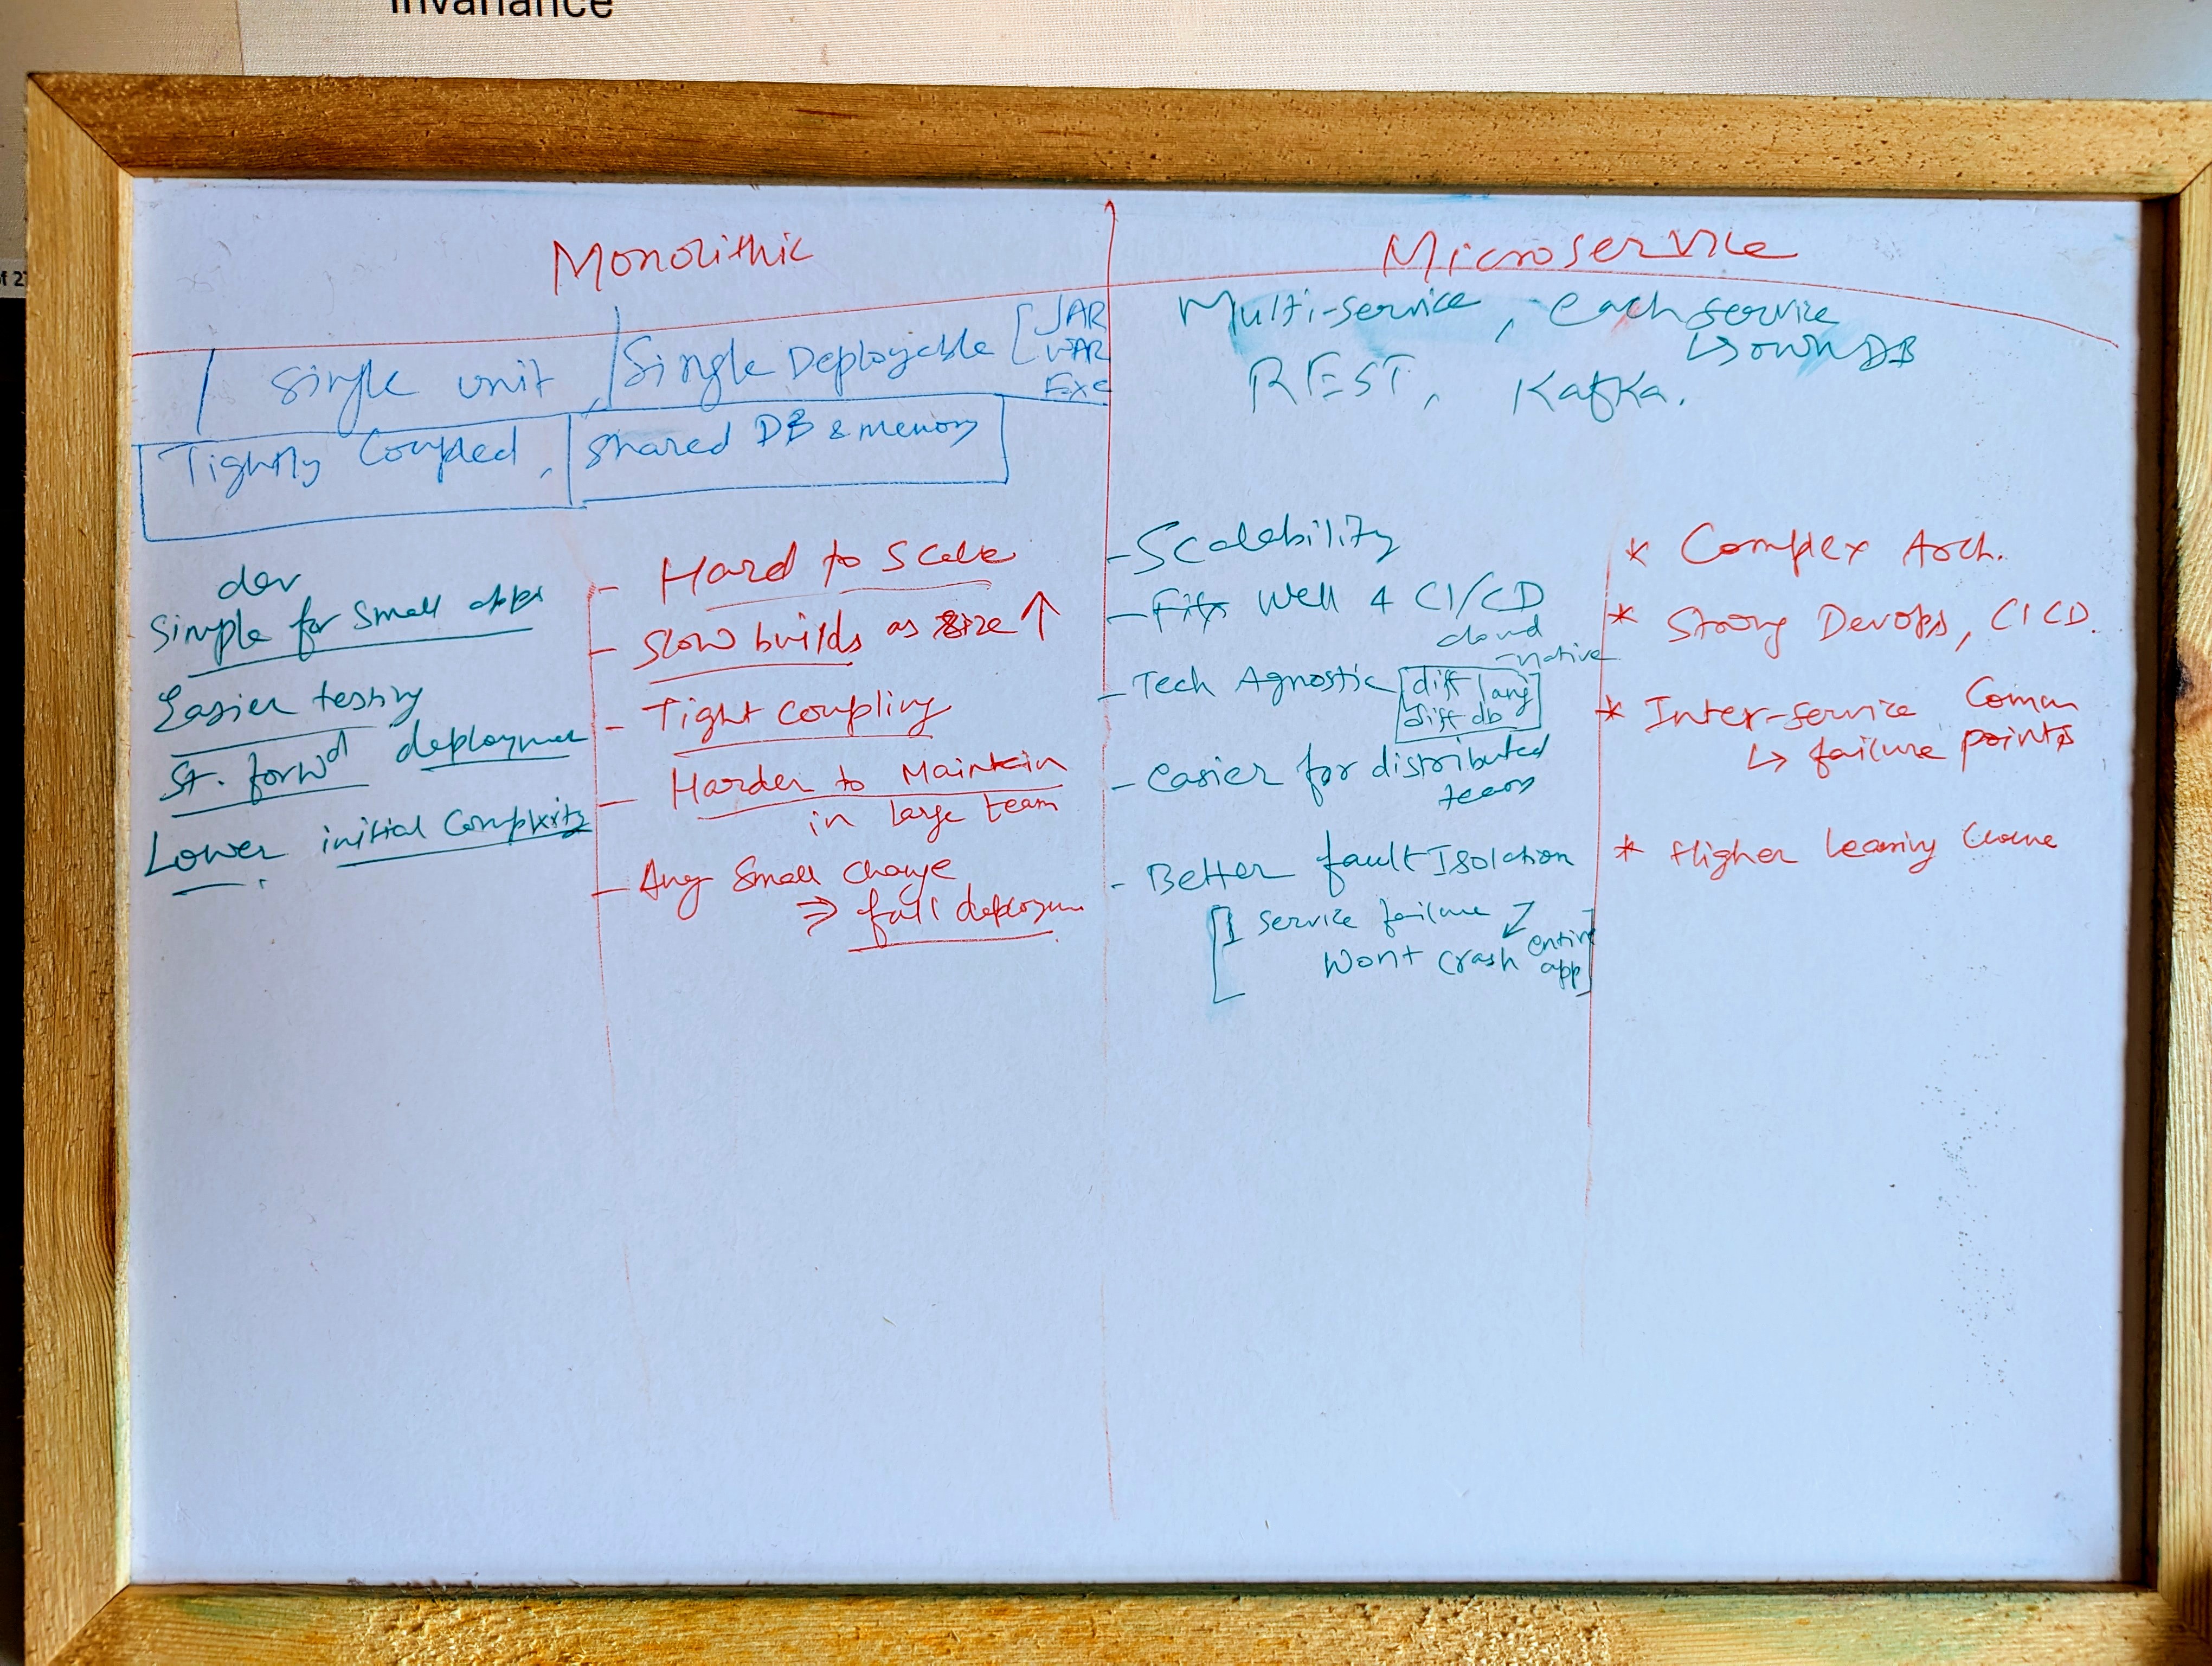 invariance
Monolithic
single unit, Single Deployable [JAR
WAR
Exe
Tightly Coupled, shared DB & memory
dev
Simple for small apps
Easier testing
St. forwd deployment
Lower initial Complexity
- Hard to Scale
- Slow builds as size ↑
- Tight coupling
- Harder to Maintain
in large team
- Any Small change
⇒ full deploym
Microservice
Multi-service, each service
↳ own DB
REST, Kafka.
- Scalability
- Fits Well 4 CI/CD
cloud
-native
- Tech Agnostic [diff lang
diff db]
- easier for distributed
teams
- Better fault Isolation
[1 service failure
Wont crash entire
app]
* Complex Arch.
* Strong Devops, CICD.
* Inter-service Comm
↳ failure points
* Higher learning Curve